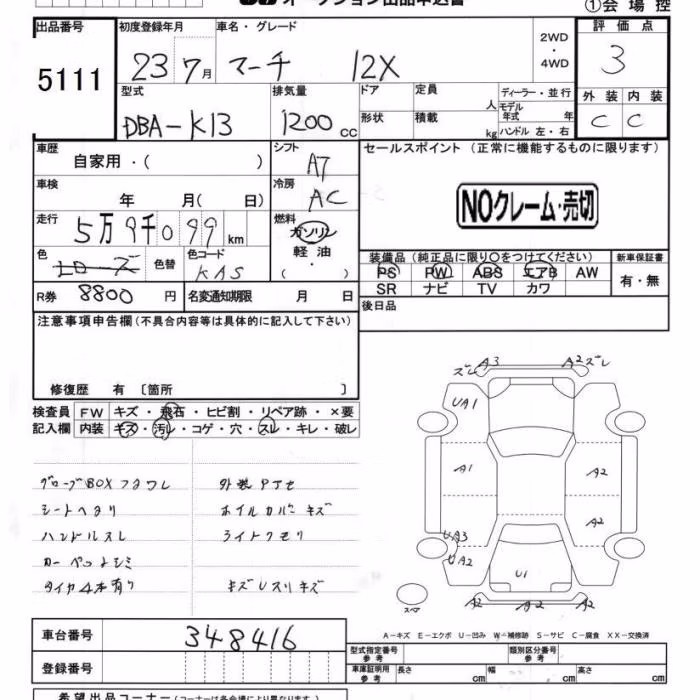 ①会場控
出品番号 初度登録年月 車名・グレード 評価点
5111 23 7月 マーチ 12X 2WD・4WD 3
型式 排気量 ドア 定員 人 ディーラー・並行 外装 内装
DBA-K13 1200cc 形状 積載 kg モデル年式 年 ハンドル 左・右 C C
車歴 自家用・( ) シフト A7 セールスポイント(正常に機能するものに限ります)
車検 年 月( 日) 冷房 AC
NOクレーム・売切
走行 5万9千099km 燃料 ガソリン
軽油
・( ・ )
色 色替 色コード KAS
装備品(純正品に限り○をつけてください) 新車保証書
PS PW ABS エアB AW 有・無
SR ナビ TV カワ
R券 8800円 名変通知期限 月 日 後日品
注意事項申告欄(不具合内容等は具体的に記入して下さい)
修復歴 有 〔箇所 〕
検査員 FW キズ・飛石・ヒビ割・リペア跡・×要
記入欄 内装 キズ・汚レ・コゲ・穴・スレ・キレ・破レ
グローブBOXフタワレ
シートヘタリ ホイルカバーキズ
ハンドルスレ ライトクモリ
カーペットシミ
タイヤ4本有り キズUスリキズ
A3 A2 ズレ
UA1
A1 A2
A2
UA3
UA2
U1
A2 A2 A2
スペア
A-キズ E-エクボ U-凹み W-補修跡 S-サビ C-腐食 XX-交換済
車台番号 348416
登録番号
型式指定番号 参考 類別区分番号 参考
車庫証明用 参考 長さ cm 幅 cm 高さ cm
希望出品コーナー